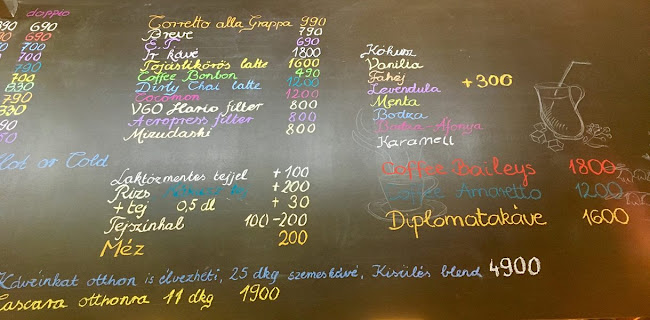 doppio
690
690
700
700
790
700
830
790
830
890
Corretto alla Grappa 990
Breve 790
E.T. 690
Ír kávé 1800
Tojáslikőrös latte 1600
Coffee Bonbon 490
Dirty Chai latte 1200
Cocomon 1200
V60 Hario filter 800
Aeropress filter 800
Mizudashi 800
Kókusz
Vanília
Fahéj
Levendula + 300
Menta
Bodza
Bodza-Áfonya
Karamell
Coffee Baileys 1800
Coffee Amaretto 1200
Diplomatakávé 1600
Hot or Cold
Laktózmentes tejjel + 100
Rizs + 200
+ tej 0,5 dl + 30
Tejszínhab 100-200
Méz 200
Kávéinkat otthon is élvezheti, 25 dkg szemeskávé, Kisülés blend 4900
Cascara otthonra 11 dkg 1900